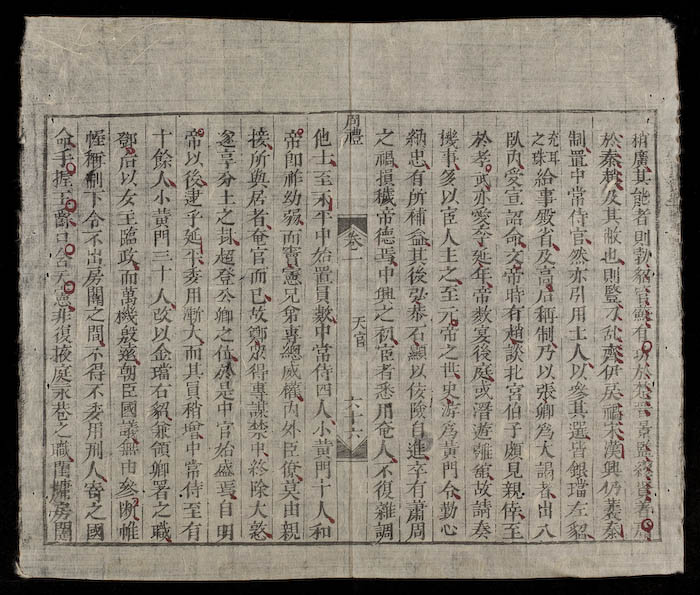 稍廣其能者則勃貂管蘇有功於楚晉景監繆賢著庸
於秦趙及其敝也則豎刁亂齊伊戾禍宋漢興仍襲秦
制置中常侍官然亦引用士人以參其選皆銀璫左貂
給事殿省及高后稱制乃以張卿為大謁者出入
臥內受宣詔命文帝時有趙談北宮伯子頗見親倖至
於孝武亦愛李延年帝數宴後庭或潛遊離館故請奏
機事多以宦人主之至元帝之世史游為黃門令勤心
納忠有所補益其後弘恭石顯以佞險自進卒有蕭周
之禍損穢帝德焉中興之初宦者悉用奄人不復雜調
周禮 卷二 天官 六十六
他士至永平中始置員數中常侍四人小黃門十人和
帝即祚幼弱而竇憲兄弟專總威權內外臣僚莫由親
接所與居者奄官而已故鄭眾得專謀禁中終除大憝
遂享分土之封超登公卿之位於是中官始盛焉自明
帝以後逮乎延平委用漸大而其員稍增中常侍至有
十餘人小黃門二十人改以金璫右貂兼領卿署之職
鄧后以女主臨政而萬機殷遠朝臣國議無由參斷帷
幄稱制下令不出房闈之間不得不委用刑人寄之國
命手握王爵口含天憲非復掖庭永巷之職閨牖房闥